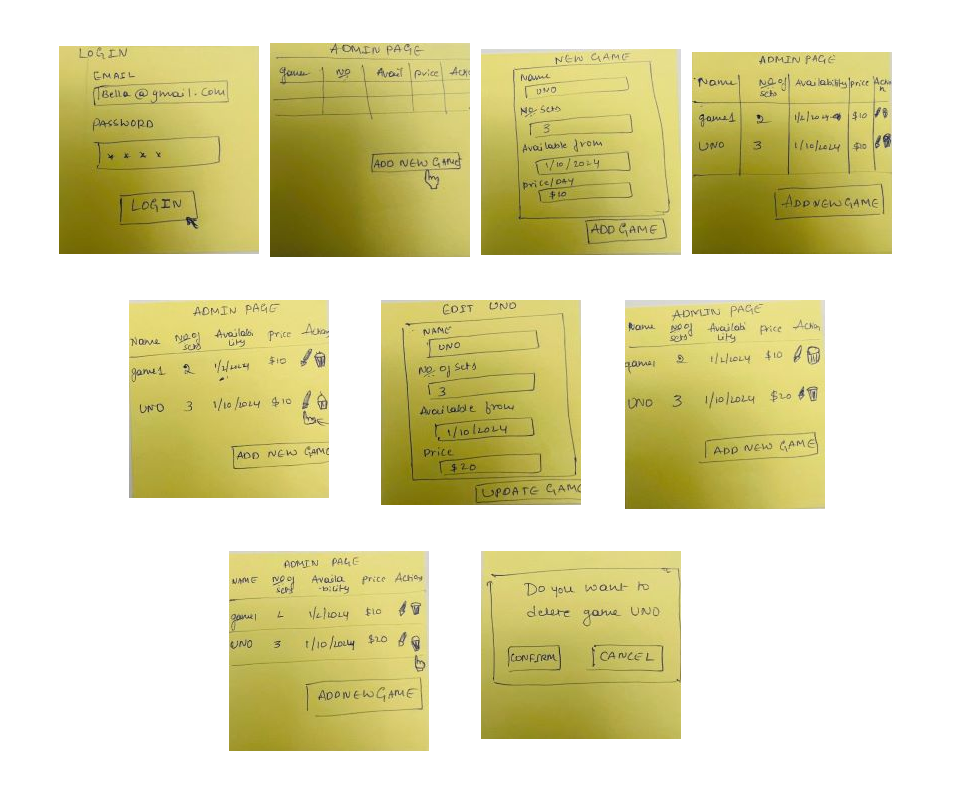 LOGIN
EMAIL
Bella@gmail.com
PASSWORD
* * * *
LOGIN
ADMIN PAGE
game No Avail price
ADD NEW GAME
NEW GAME
Name
UNO
No Sets
3
Available from
1/10/2024
price/DAY
$10
ADD GAME
ADMIN PAGE
Name No of sets Availability price Action
game1 2 1/2/2024 $10
UNO 3 1/10/2024 $10
ADD NEW GAME
ADMIN PAGE
Name No of sets Availability Price Action
game1 2 1/2/2024 $10
UNO 3 1/10/2024 $10
ADD NEW GAME
EDIT UNO
NAME
UNO
No. of Sets
3
Available from
1/10/2024
Price
$20
UPDATE GAME
ADMIN PAGE
Name No of sets Availability Price Action
game1 2 1/2/2024 $10
UNO 3 1/10/2024 $20
ADD NEW GAME
ADMIN PAGE
NAME No of sets Availa-bility Price Action
game1 2 1/2/2024 $10
UNO 3 1/10/2024 $20
ADD NEW GAME
Do you want to
delete game UNO
CONFIRM CANCEL